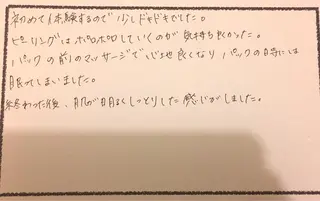 初めて体験するので少しドキドキでした。
ピーリングはポロポロしていくのが気持ち良かった。
パックの前のマッサージで心地良くなり パックの時には
眠ってしまいました。
終わった後、肌が明るくしっとりした感じがしました。